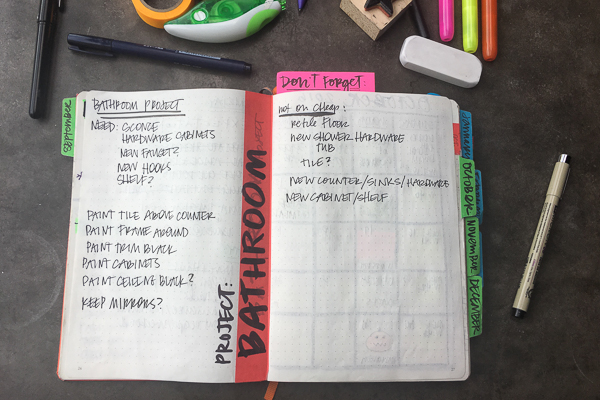 DON'T FORGET:
SEPTEMBER
BATHROOM PROJECT
NEED: SCONCE
HARDWARE CABINETS
NEW FAUCET?
NEW HOOKS
SHELF?
PAINT TILE ABOVE COUNTER
PAINT FRAME AROUND
PAINT TRIM BLACK
PAINT CABINETS
PAINT CEILING BLACK?
KEEP MIRRORS?
PROJECT:
BATHROOM
not so cheap:
retile floor
NEW SHOWER HARDWARE
TUB
TILE?
NEW COUNTER/SINKS/HARDWARE
NEW CABINET/SHELF
OCTOBER
NOVEMBER
DECEMBER